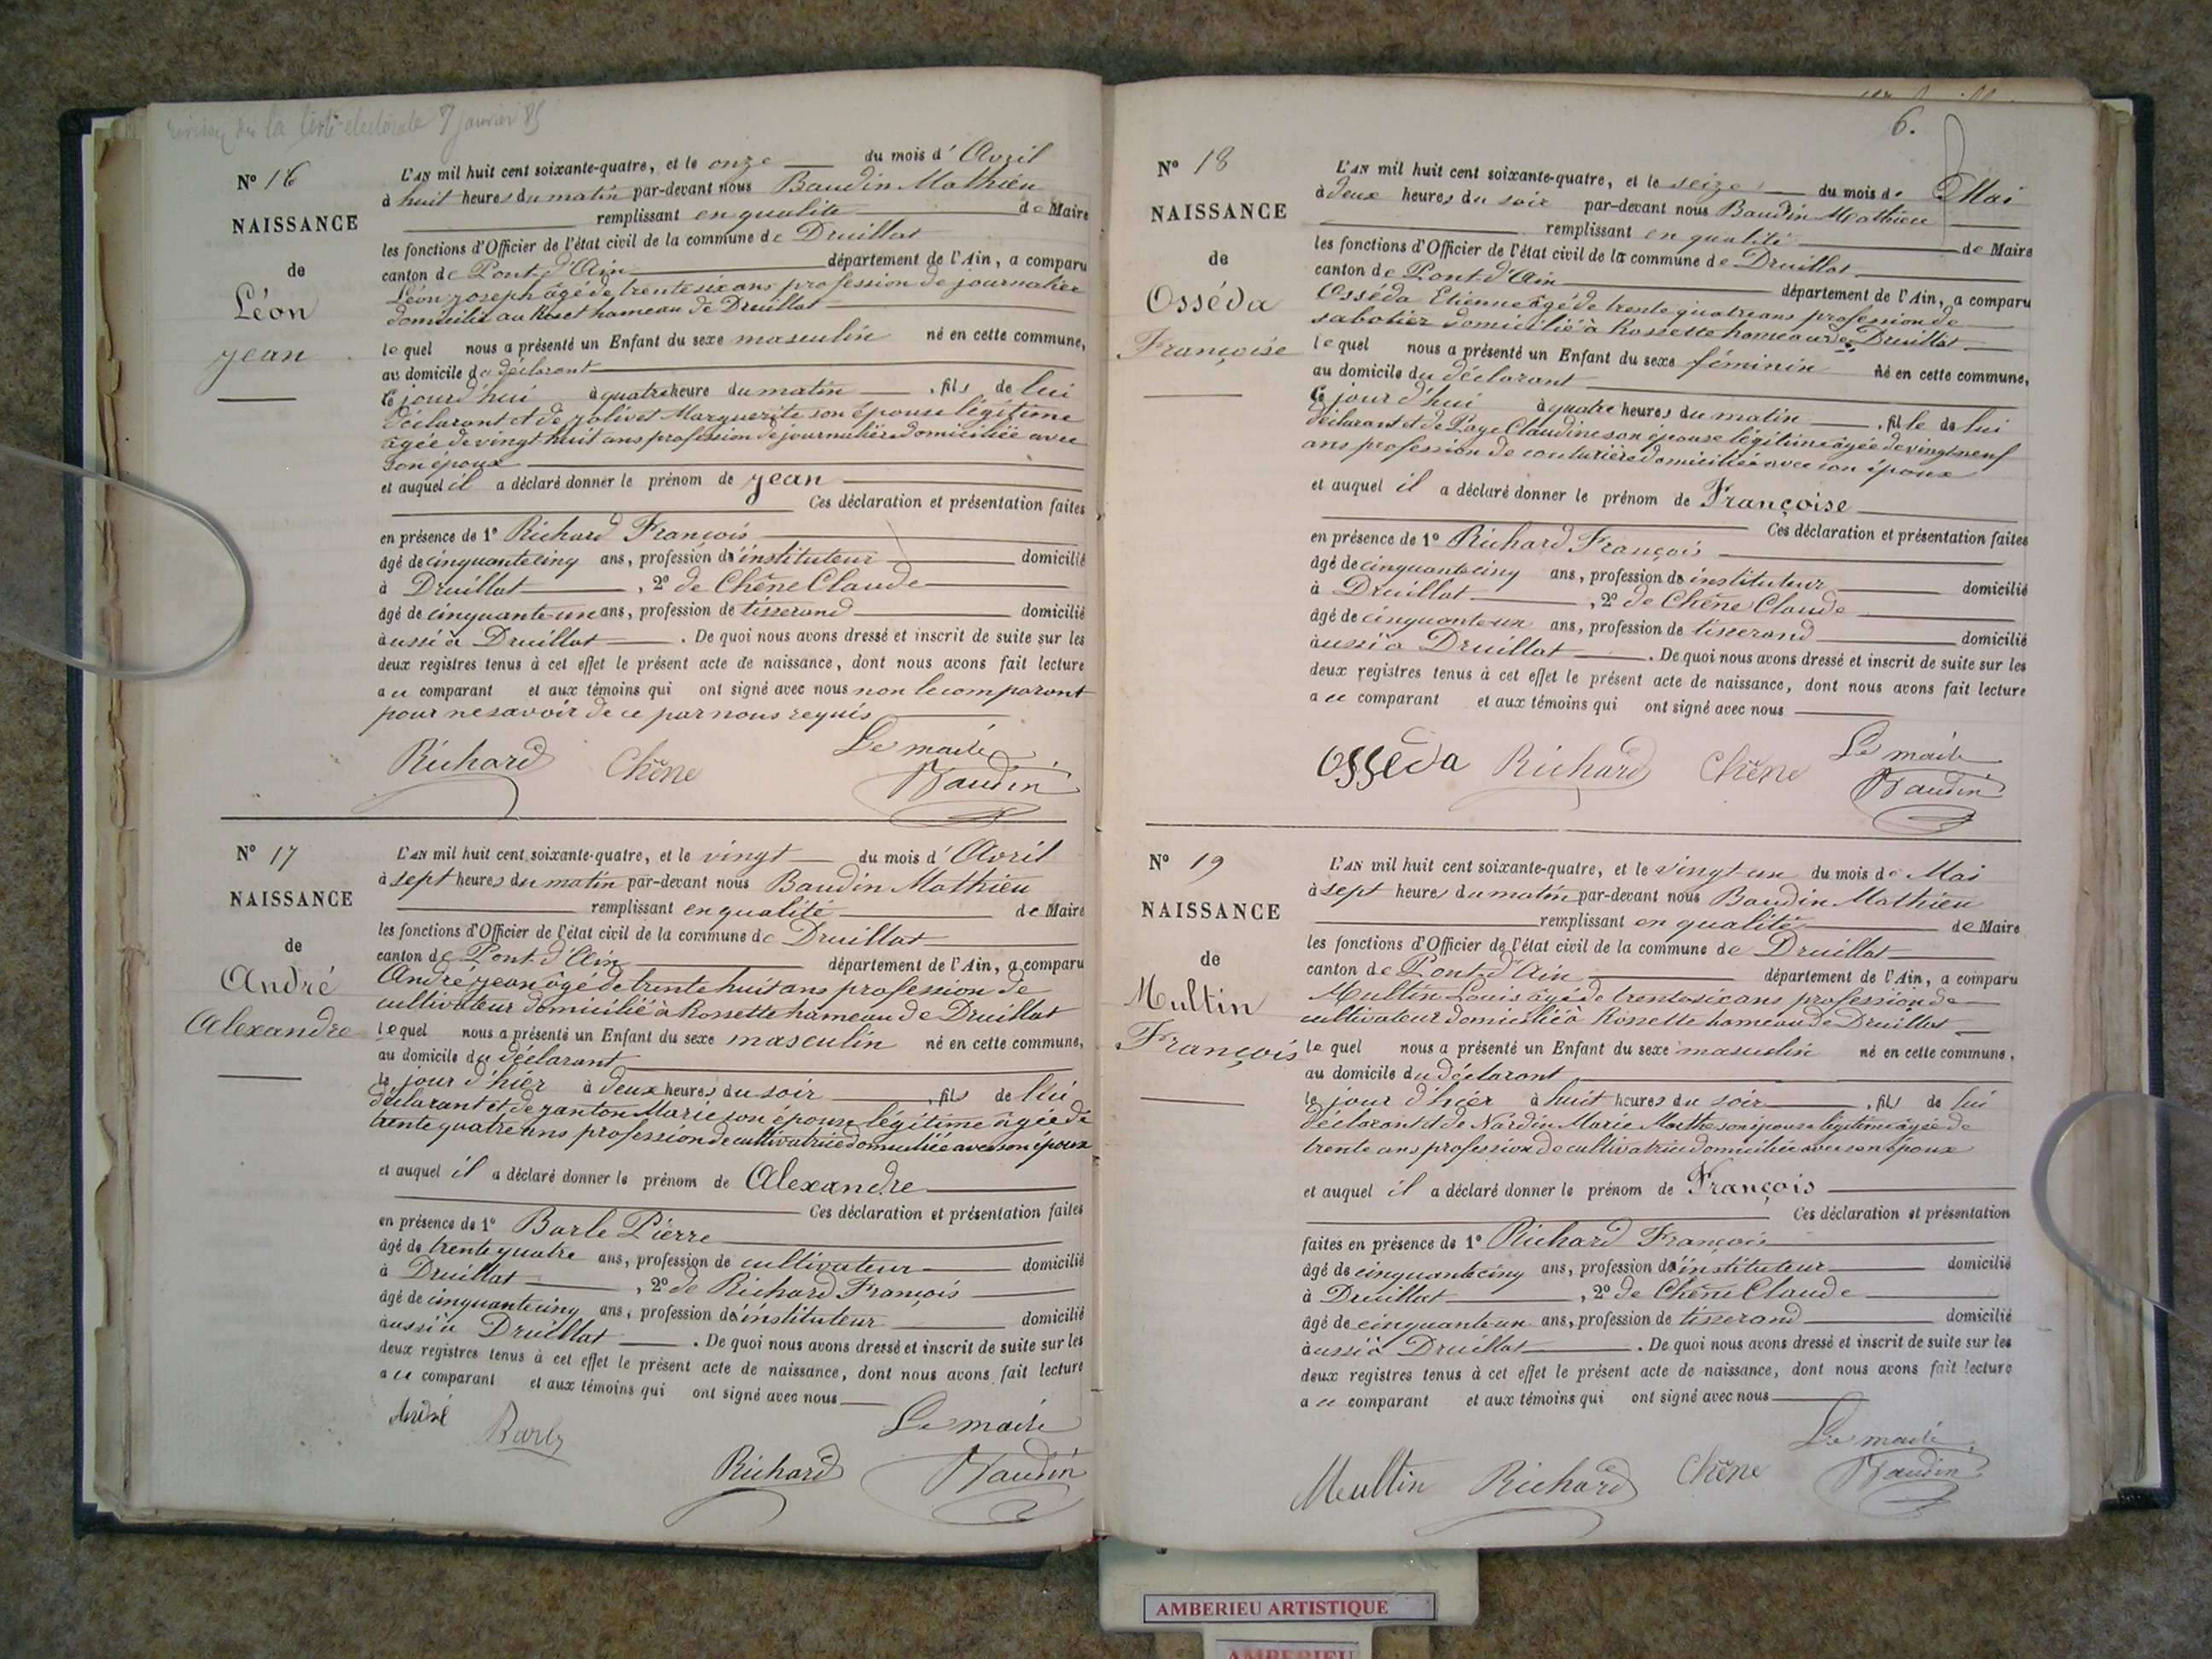 la liste électorale 7 janvier 85
N° 16
NAISSANCE
de
Léon
jean
L'AN mil huit cent soixante-quatre, et le onze du mois d'Avril
à huit heures du matin par-devant nous Baudin Mathieu
remplissant en qualité de Maire
les fonctions d'Officier de l'état civil de la commune de Druillat
canton de Pont-d'Ain département de l'Ain, a comparu
Léon joseph âgé de trente six ans profession de journalier
domicilié au Roset hameau de Druillat
lequel nous a présenté un Enfant du sexe masculin né en cette commune,
au domicile du déclarant
ce jourd'hui à quatre heure du matin, fils de lui
déclarant et de jolivet Marguerite son épouse légitime
âgée de vingt huit ans profession de journalière domiciliée avec
son époux
et auquel il a déclaré donner le prénom de jean
Ces déclaration et présentation faites
en présence de 1° Richard François
âgé de cinquante cinq ans, profession d'instituteur domicilié
à Druillat, 2° de Chêne Claude
âgé de cinquante un ans, profession de tisserand domicilié
aussi à Druillat. De quoi nous avons dressé et inscrit de suite sur les
deux registres tenus à cet effet le présent acte de naissance, dont nous avons fait lecture
au comparant et aux témoins qui ont signé avec nous non le comparant
pour ne savoir de ce par nous requis
Le maire
Richard Chêne Baudin
N° 17
NAISSANCE
de
André
Alexandre
L'AN mil huit cent soixante-quatre, et le vingt du mois d'Avril
à sept heures du matin par-devant nous Baudin Mathieu
remplissant en qualité de Maire
les fonctions d'Officier de l'état civil de la commune de Druillat
canton de Pont-d'Ain département de l'Ain, a comparu
André jean âgé de trente huit ans profession de
cultivateur domicilié à Rossette hameau de Druillat
lequel nous a présenté un Enfant du sexe masculin né en cette commune,
au domicile du déclarant
le jour d'hier à deux heures du soir, fils de lui
déclarant et de janton Marie son épouse légitime âgée de
trente quatre ans profession de cultivatrice domiciliée avec son époux
et auquel il a déclaré donner le prénom de Alexandre
Ces déclaration et présentation faites
en présence de 1° Barle Pierre
âgé de trente quatre ans, profession de cultivateur domicilié
à Druillat, 2° de Richard François
âgé de cinquante cinq ans, profession d'instituteur domicilié
aussi à Druillat. De quoi nous avons dressé et inscrit de suite sur les
deux registres tenus à cet effet le présent acte de naissance, dont nous avons fait lecture
au comparant et aux témoins qui ont signé avec nous
André Le maire
Richard Baudin
6.
N° 18
NAISSANCE
de
Osséda
Françoise
L'AN mil huit cent soixante-quatre, et le seize du mois de Mai
à deux heures du soir par-devant nous Baudin Mathieu
remplissant en qualité de Maire
les fonctions d'Officier de l'état civil de la commune de Druillat
canton de Pont-d'Ain département de l'Ain, a comparu
Osséda Etienne âgé de trente quatre ans profession de
sabotier domicilié à Rossette hameau de Druillat
lequel nous a présenté un Enfant du sexe féminin né en cette commune,
au domicile du déclarant
ce jour d'hui à quatre heures du matin, fille de lui
déclarant et de Page Claudine son épouse légitime âgée de vingt neuf
ans profession de couturière domiciliée avec son époux
et auquel il a déclaré donner le prénom de Françoise
Ces déclaration et présentation faites
en présence de 1° Richard François
âgé de cinquante cinq ans, profession d'instituteur domicilié
à Druillat, 2° de Chêne Claude
âgé de cinquante un ans, profession de tisserand domicilié
aussi à Druillat. De quoi nous avons dressé et inscrit de suite sur les
deux registres tenus à cet effet le présent acte de naissance, dont nous avons fait lecture
a ce comparant et aux témoins qui ont signé avec nous
Le maire
Osséda Richard Chêne Baudin
N° 19
NAISSANCE
de
Multin
François
L'AN mil huit cent soixante-quatre, et le vingt un du mois de Mai
à sept heures du matin par-devant nous Baudin Mathieu
remplissant en qualité de Maire
les fonctions d'Officier de l'état civil de la commune de Druillat
canton de Pont-d'Ain département de l'Ain, a comparu
Multin Louis âgé de trente six ans profession de
cultivateur domicilié à Rossette hameau de Druillat
lequel nous a présenté un Enfant du sexe masculin né en cette commune,
au domicile du déclarant
le jour d'hier à huit heures du soir, fils de lui
déclarant et de Nardin Marie Marthe son épouse légitime âgée de
trente ans profession de cultivatrice domiciliée avec son époux
et auquel il a déclaré donner le prénom de François
Ces déclaration et présentation
faites en présence de 1° Richard François
âgé de cinquante cinq ans, profession d'instituteur domicilié
à Druillat, 2° de Chêne Claude
âgé de cinquante un ans, profession de tisserand domicilié
aussi à Druillat. De quoi nous avons dressé et inscrit de suite sur les
deux registres tenus à cet effet le présent acte de naissance, dont nous avons fait lecture
a ce comparant et aux témoins qui ont signé avec nous
Le maire
Multin Richard Chêne Baudin
AMBERIEU ARTISTIQUE
AMBERIEU